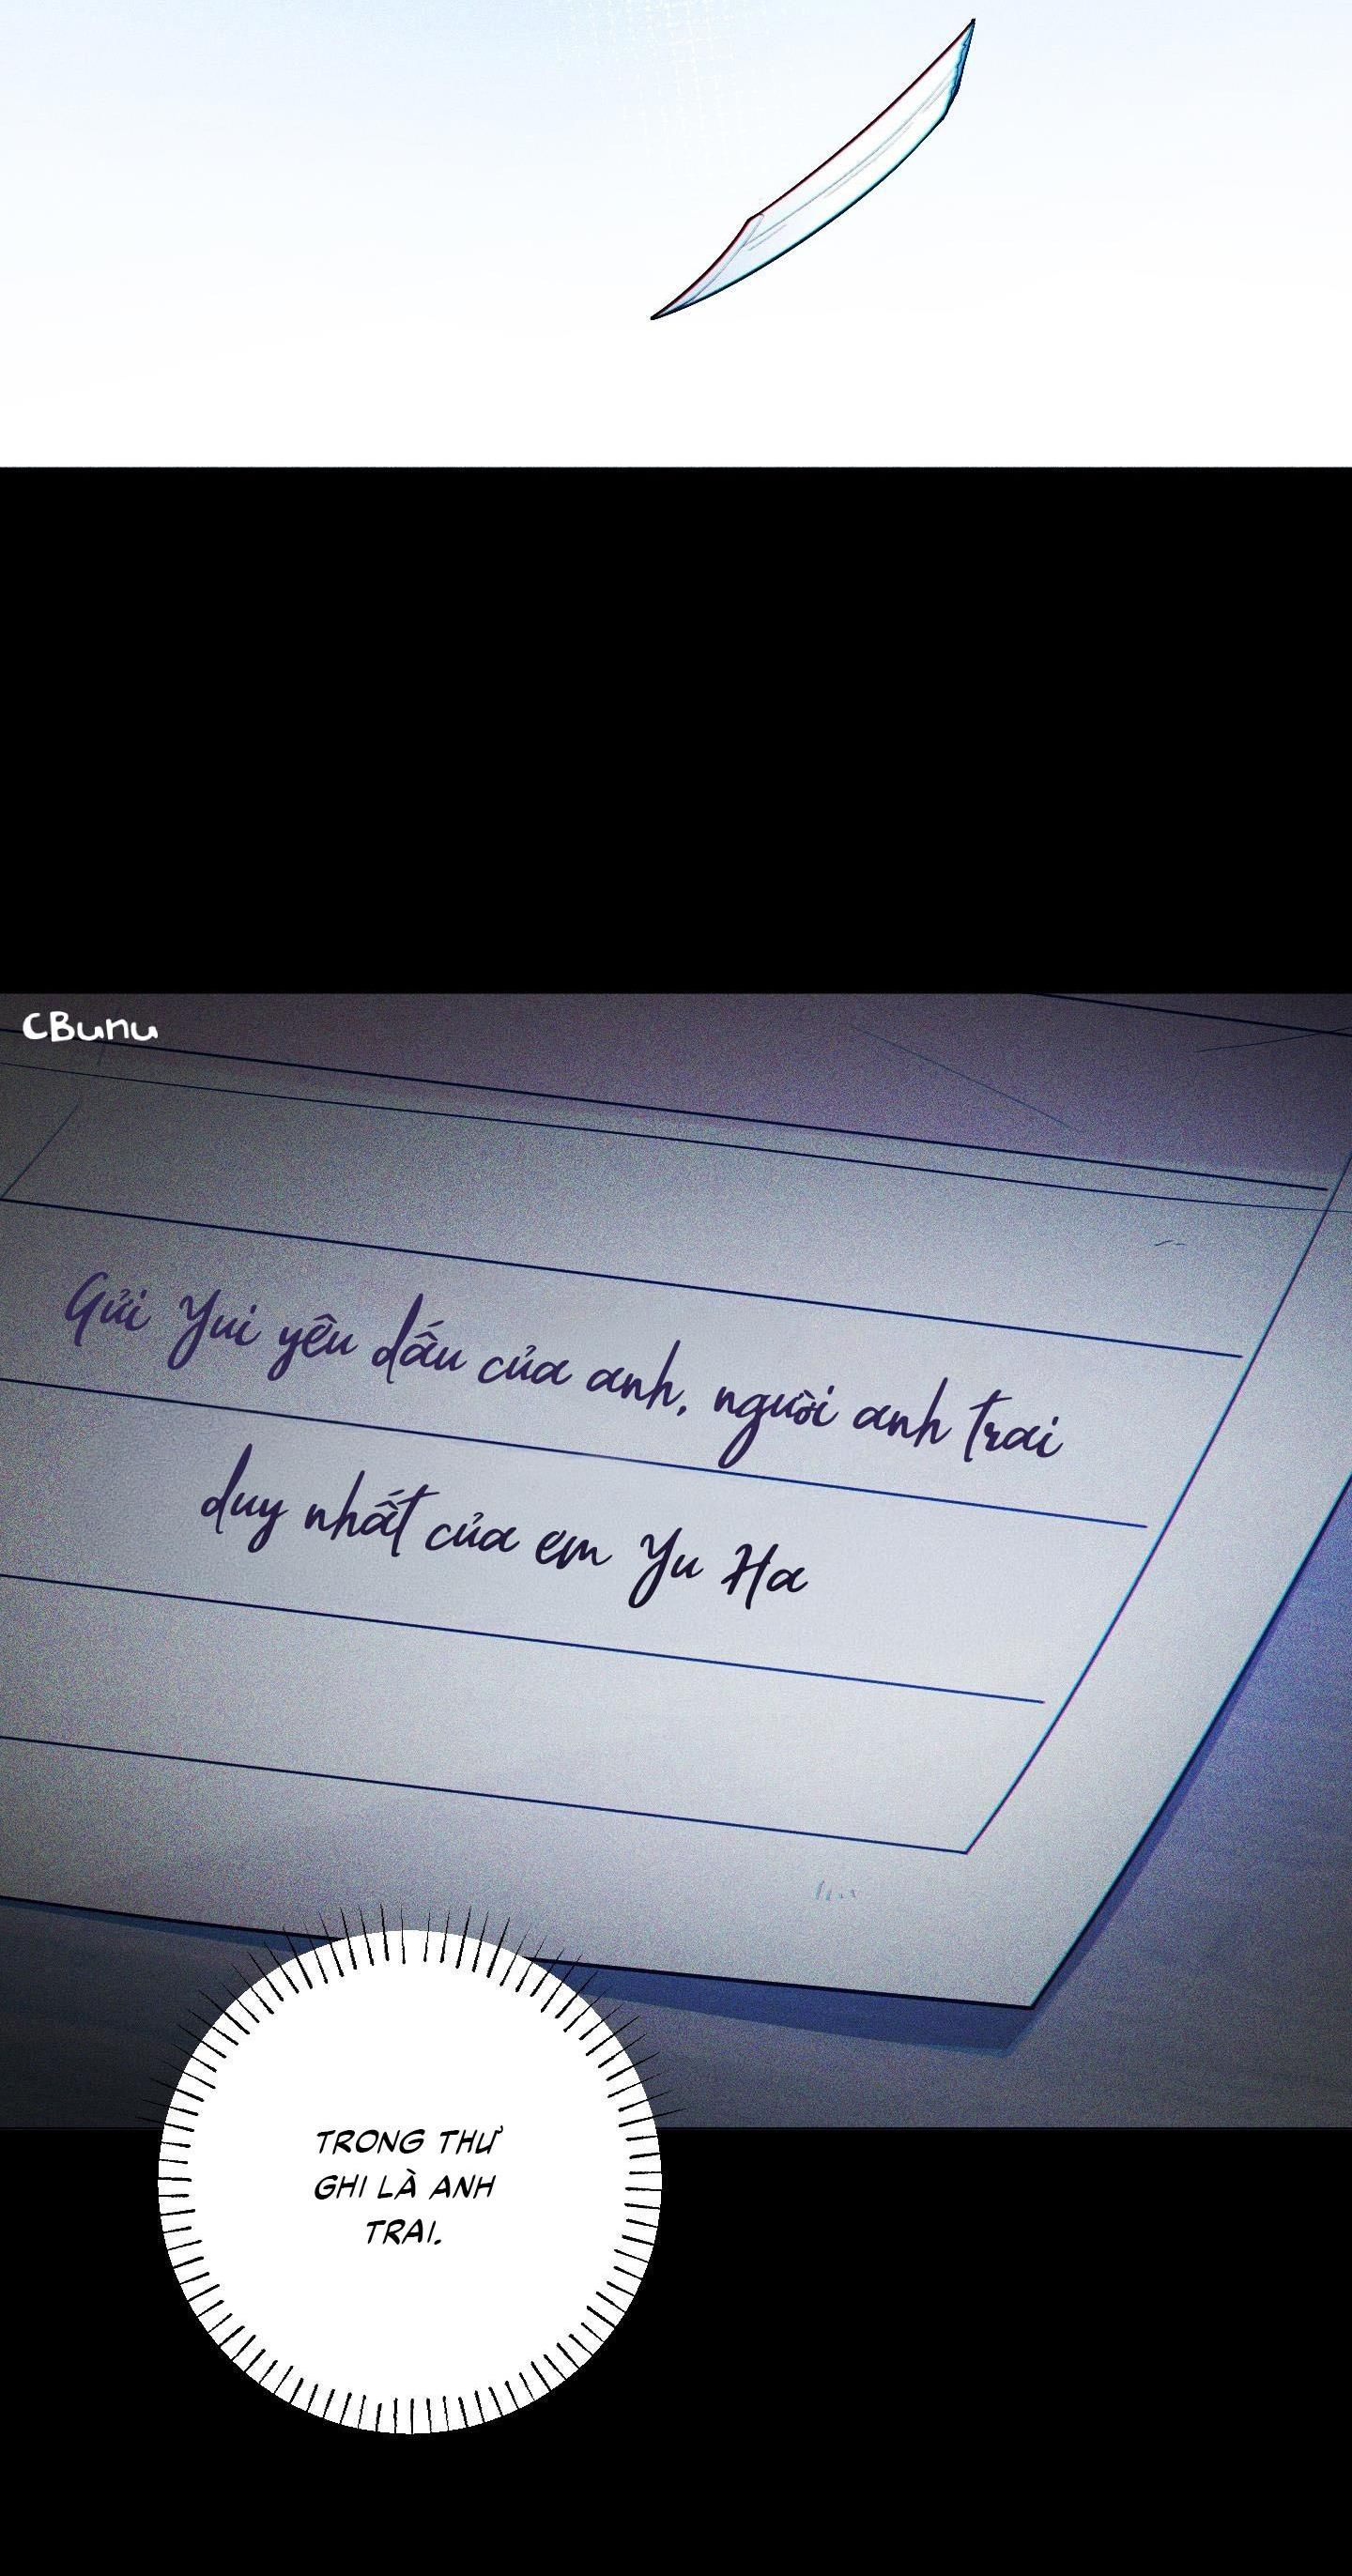 CBunu
Gửi Yui yêu dấu của anh, người anh trai
duy nhất của em Yu Ha
TRONG THƯ
GHI LÀ ANH
TRAI.